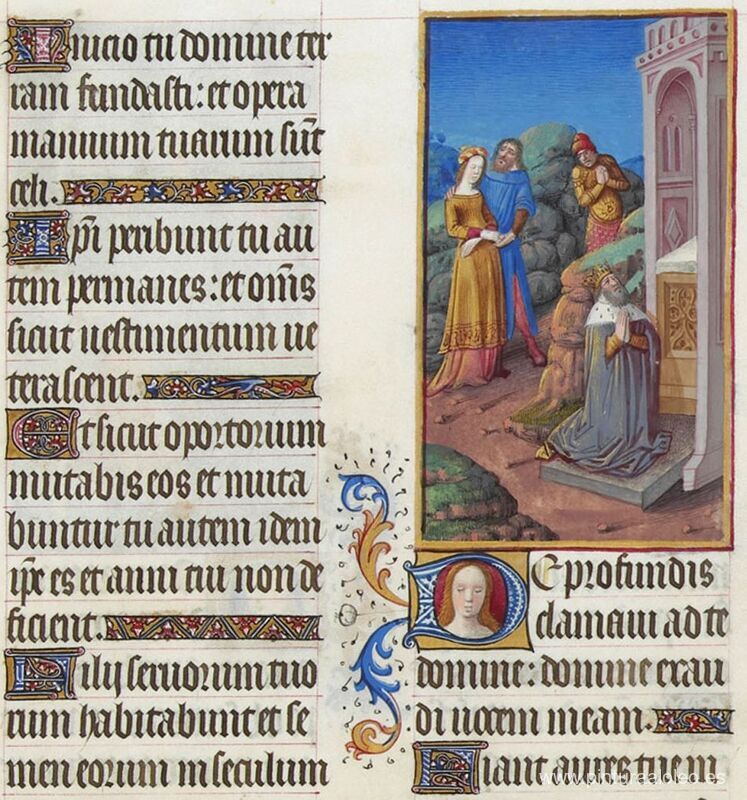 Inicio tu domine ter
ram fundasti: et opera
manuum tuarum sūt
celi.
Ipi peribunt tu au
tem permanes: et omīs
sicut uestimentum ue
terascent.
Et sicut oportorium
mutabis eos et muta
buntur tu autem idem
ipe es et anni tui non de
ficient.
Filij seruorum tuo
rum habitabunt et se
men eorum in seculum
De profundis
clamaui ad te
domine: domine exau
di uocem meam.
Fiant aures tue in
www.pinturaaloleo.es